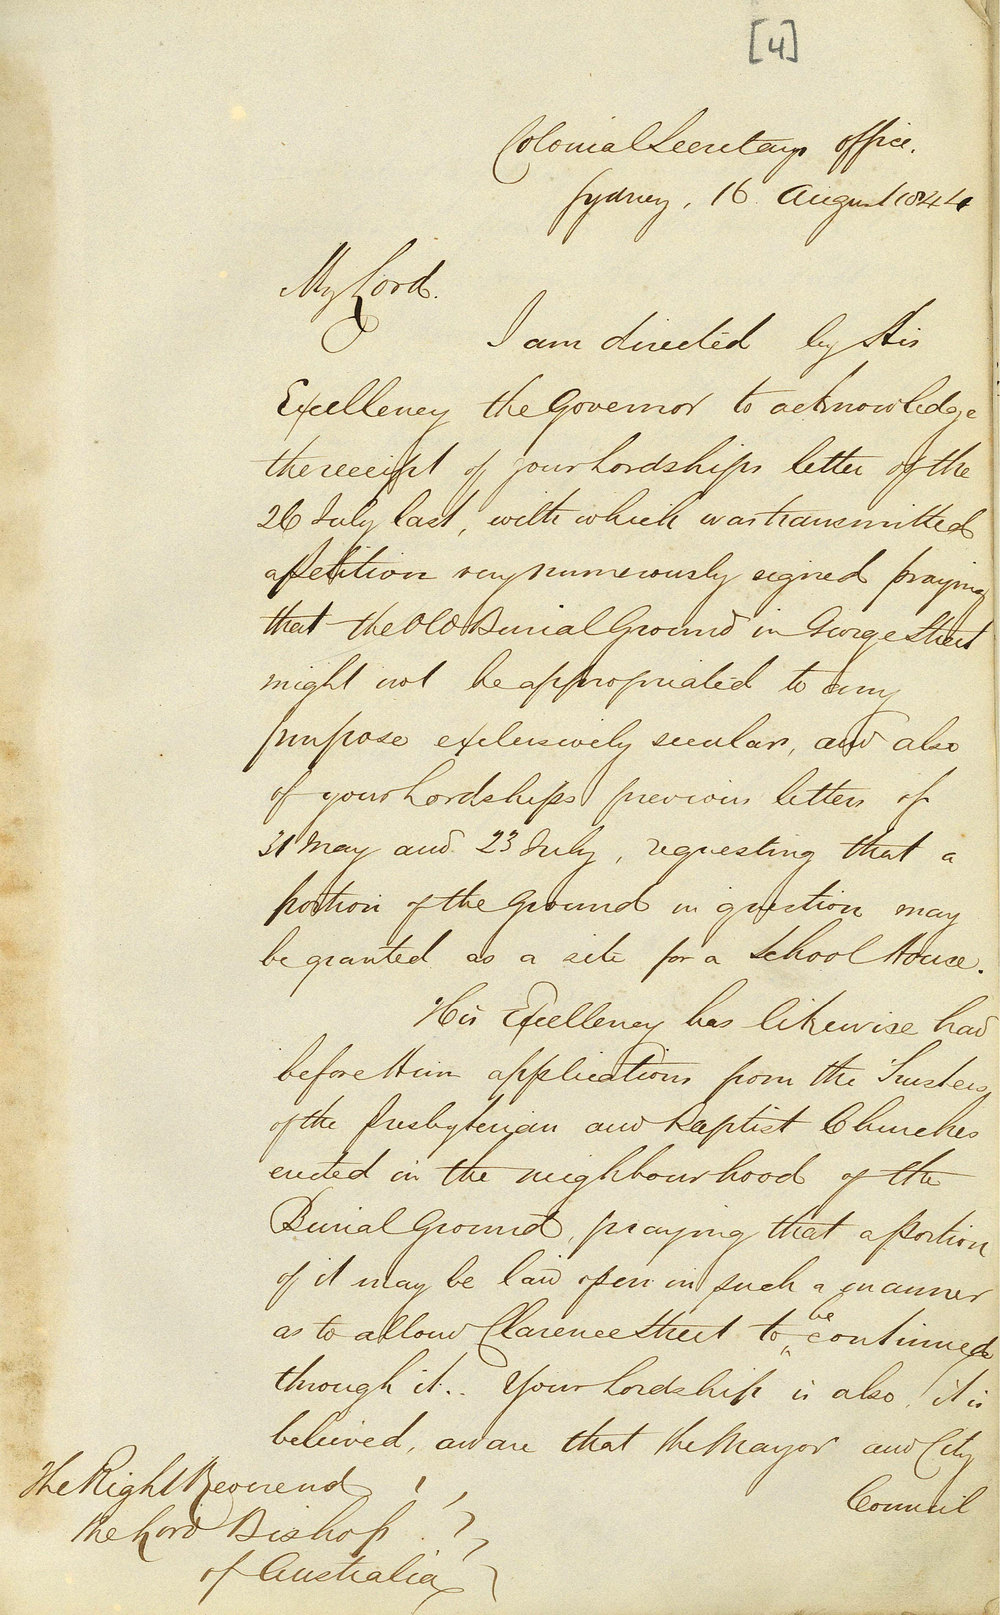 [4]
Colonial Secretarys office.
Sydney, 16 August 1844
My Lord.
I am directed by His
Excellency the Governor to acknowledge
the receipt of your Lordships letter of the
26 July last, with which was transmitted
a Petition very numerously signed praying
that the Old Burial Ground in George Street
might not be appropriated to any
purpose exclusively secular, and also
of your Lordships previous letters of
31 May and 23 July, requesting that a
portion of the Ground in question may
be granted as a site for a School House.
His Excellency has likewise had
before Him applications from the Trustees
of the Presbyterian and Baptist Churches
erected in the neighbourhood of the
Burial Ground, praying that a Portion
of it may be laid open in such a manner
as to allow Clarence Street to be continued
through it.. Your Lordship is also, it is
believed, aware that the Mayor and City
Council
The Right Reverend
the Lord Bishop
of Australia